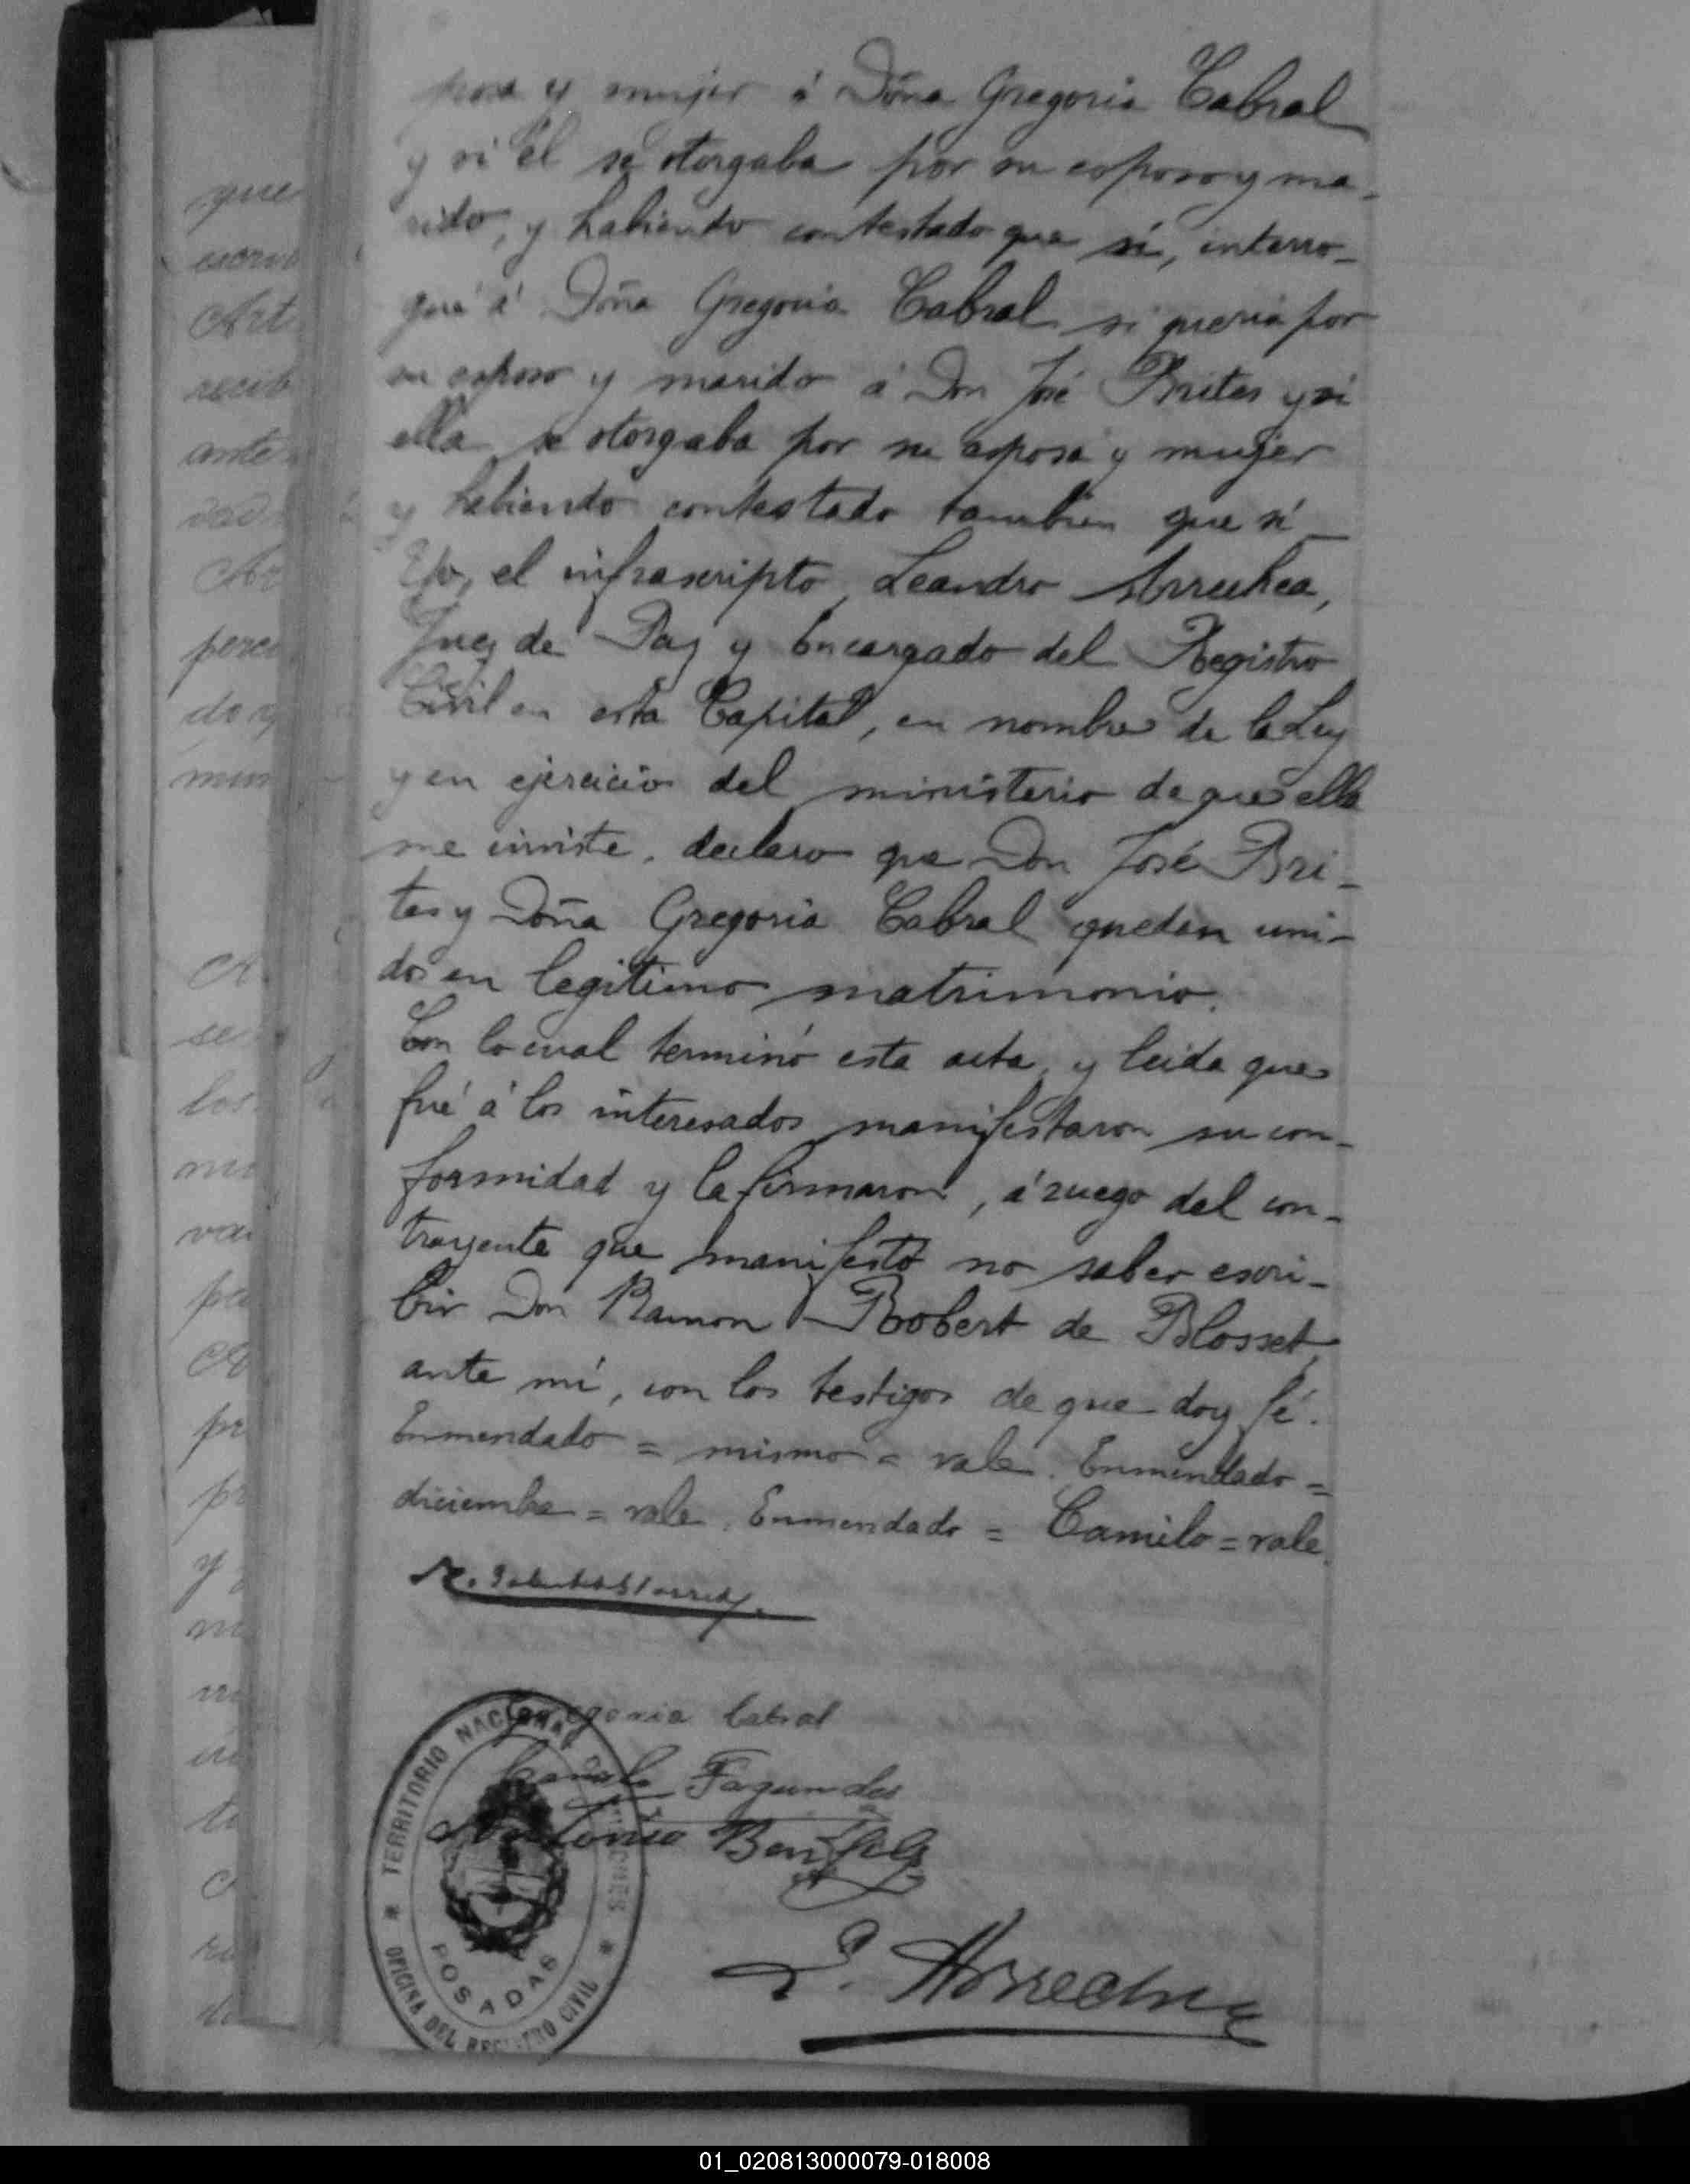 posa y mujer á Doña Gregoria Cabral
y si él se otorgaba por su esposo y ma-
rido, y habiendo contestado que sí, interro-
gué á Doña Gregoria Cabral si queria por
su esposo y marido á Don José Brites y si
ella se otorgaba por su esposa y mujer
y habiendo contestado tambien que sí
Yo, el infrascripto, Leandro Arrechea,
Juez de Paz y Encargado del Registro
Civil en esta Capital, en nombre de la Ley
y en ejercicio del ministerio de que ella
me inviste, declaro que Don José Bri-
tes y Doña Gregoria Cabral quedan uni-
dos en legitimo matrimonio.
Con lo cual terminó esta acta, y leida que
fué á los interesados manifestaron su con-
formidad y la firmaron, á ruego del con-
trayente que manifestó no saber escri-
bir Don Ramon Robert de Blosset,
ante mí, con los testigos de que doy fé.
Enmendado = mismo = vale. Enmendado =
diciembre = vale. Enmendado = Camilo = vale.
Gregoria Cabral
Camilo Fagundes
Antonio
L. Arrechea
TERRITORIO NACIONAL DE MISIONES
POSADAS
OFICINA DEL REGISTRO CIVIL
que
Art
recib
ante
perci
do y
se
los
y
01_020813000079-018008